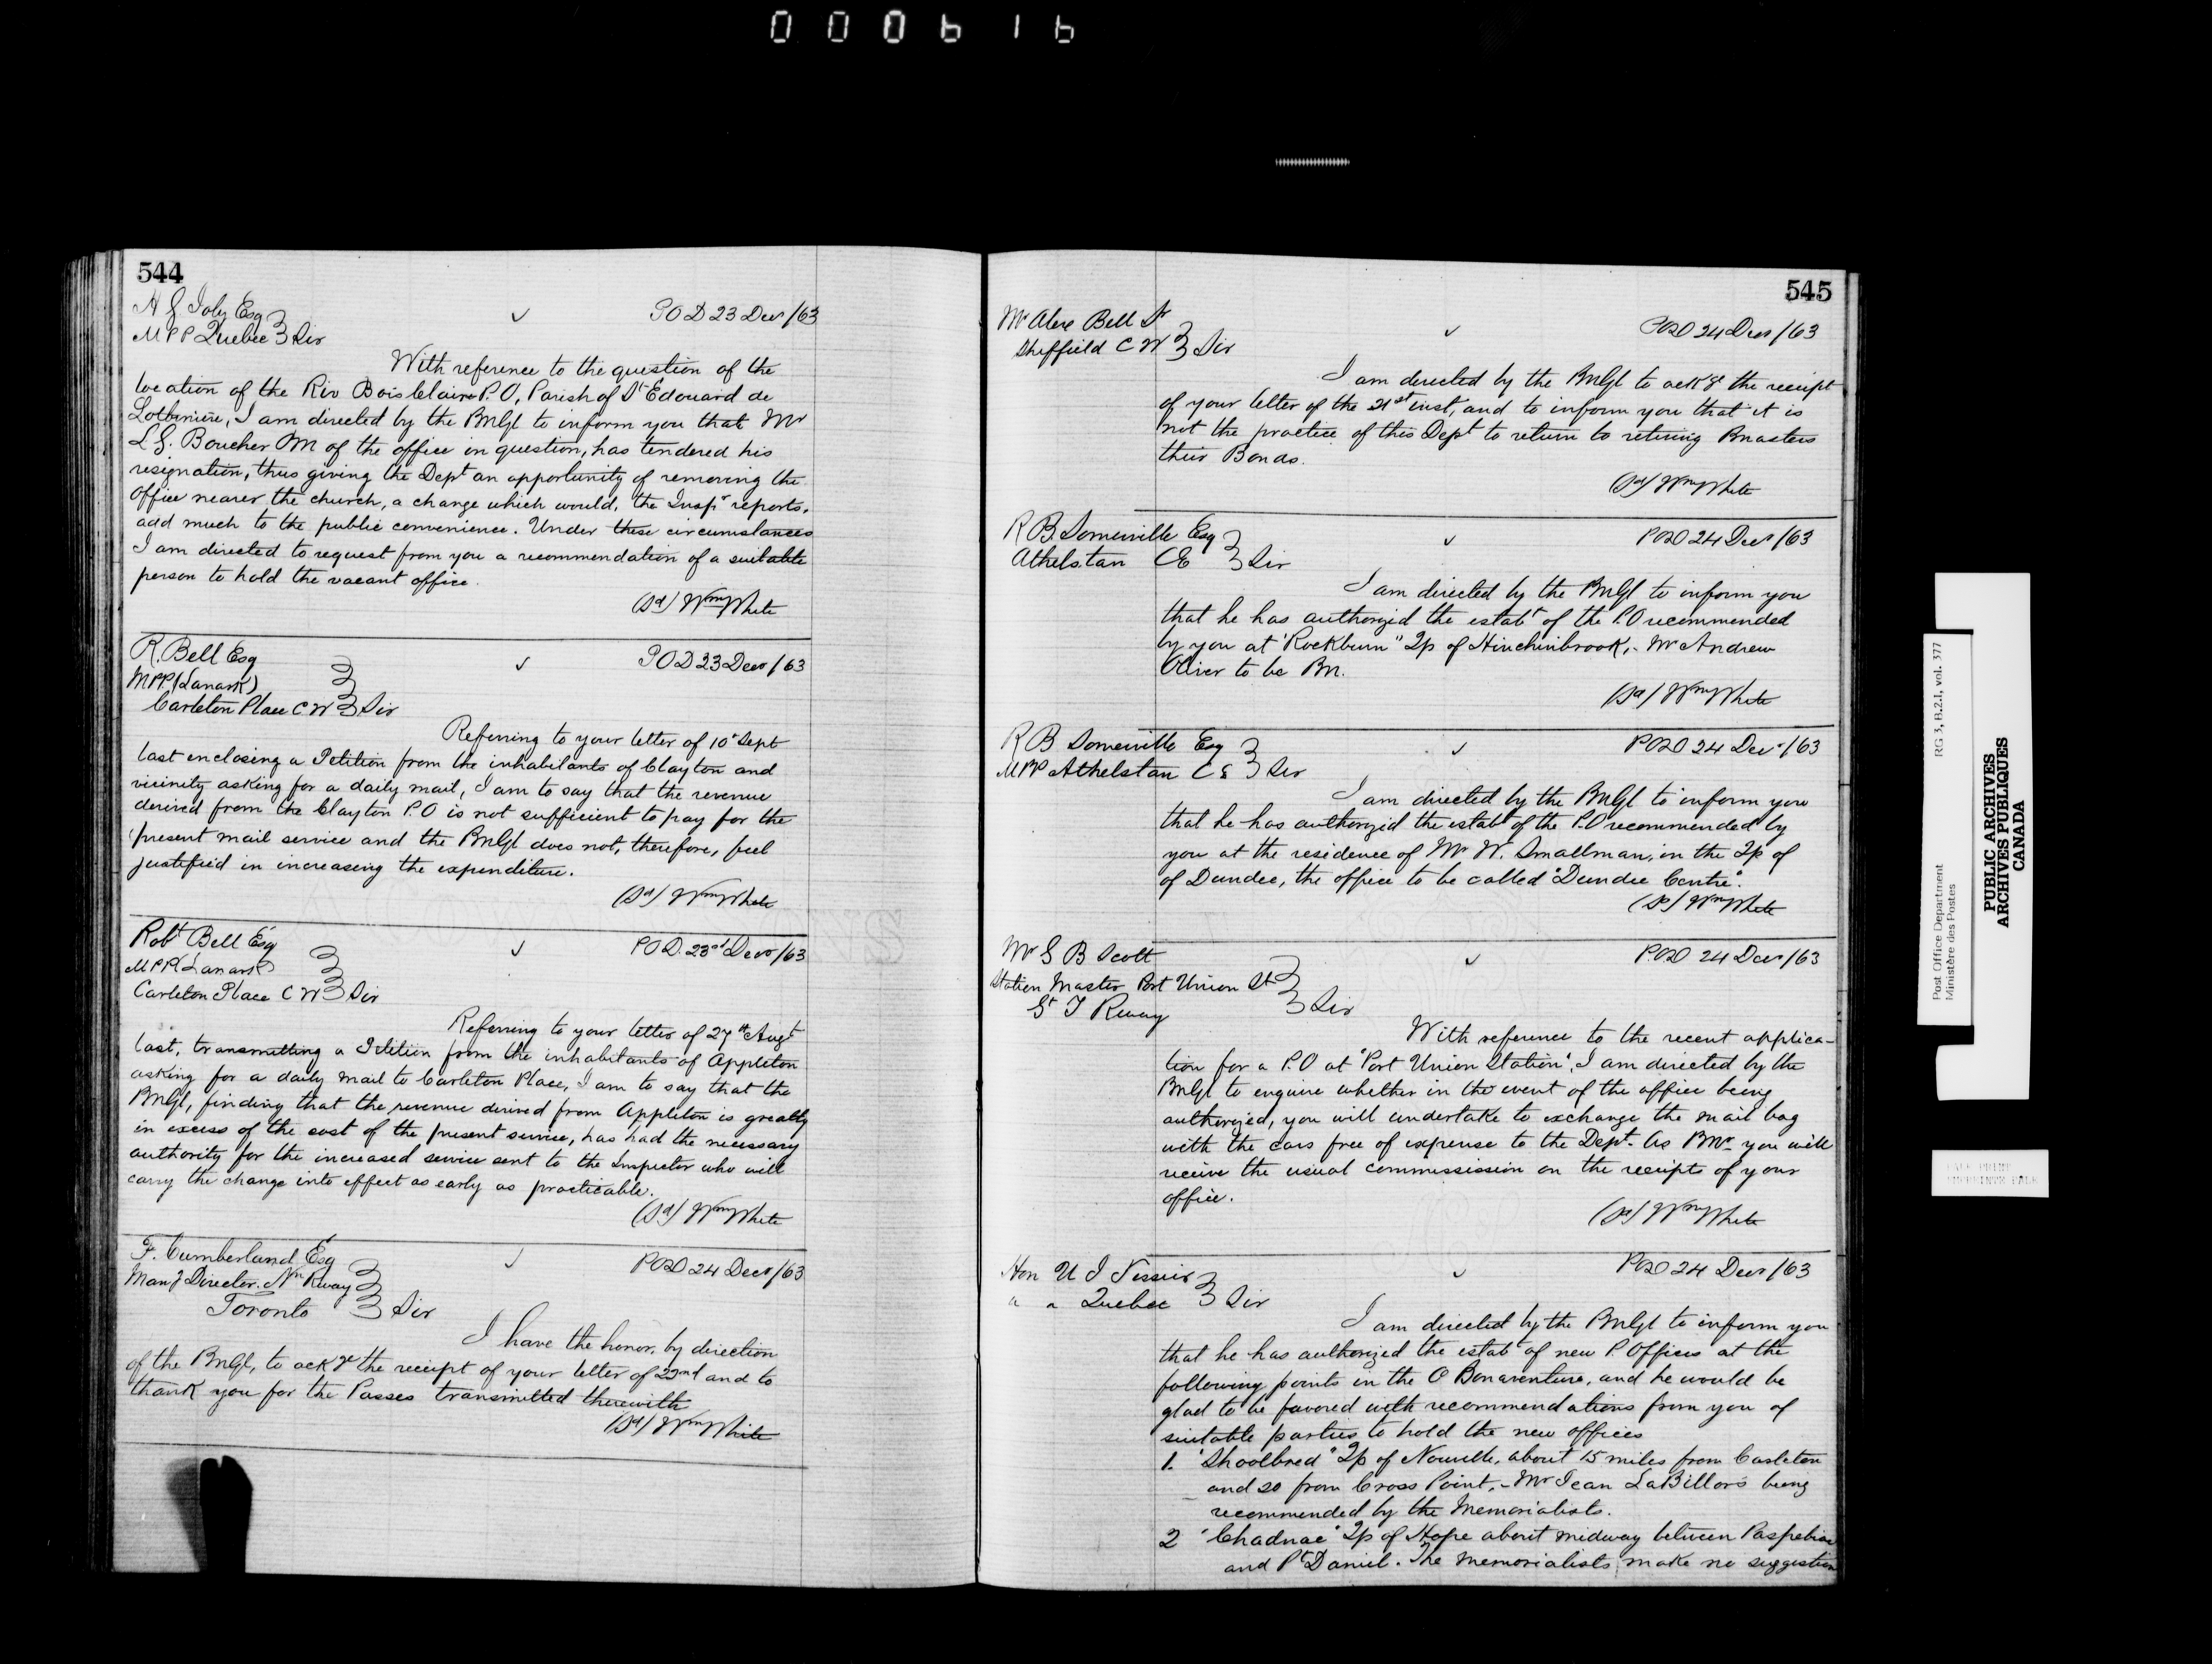 000616
544
H G Joly Esq
MPP Quebec Sir
POD 23 Decr /63
With reference to the question of the
location of the Riv Bois Claire P.O, Parish of St Edouard de
Lotbiniere, I am directed by the PMGl to inform you that Mr
L G. Boucher PM of the office in question, has tendered his
resignation, thus giving the Dept an opportunity of removing the
office nearer the church, a change which would, the Inspr reports,
add much to the public convenience. Under these circumstances
I am directed to request from you a recommendation of a suitable
person to hold the vacant office.
(Sd) Wm White
R. Bell Esq
MPP. (Lanark)
Carleton Place C W Sir
POD 23 Decr /63
Referring to your letter of 10 Sept
last enclosing a Petition from the inhabitants of Clayton and
vicinity asking for a daily mail, I am to say that the revenue
derived from the Clayton P.O is not sufficient to pay for the
present mail service and the PMGl does not, therefore, feel
justified in increasing the expenditure.
(Sd) Wm White
Robt Bell Esq
MPP (Lanark)
Carleton Place C W Sir
POD. 23rd Decr /63
Referring to your letter of 27th Augt
last, transmitting a Petition from the inhabitants of Appleton
asking for a daily mail to Carleton Place, I am to say that the
PMGl, finding that the revenue derived from Appleton is greatly
in excess of the cost of the present service, has had the necessary
authority for the increased service sent to the Inspector who will
carry the change into effect as early as practicable.
(Sd) Wm White
F. Cumberland Esq
Mang Director. Nn Rway
Toronto Sir
POD 24 Decr /63
I have the honor, by direction
of the PMGl, to ackge the receipt of your letter of 22nd and to
thank you for the Passes transmitted therewith
(Sd) Wm White
545
Mr Alex Bell Jr
Sheffield C W Sir
POD 24 Decr /63
I am directed by the PMGl to ackge the receipt
of your letter of the 21st inst, and to inform you that it is
not the practice of this Dept to return to retiring Pmasters
their Bonds.
(Sd) Wm White
R B. Somerville Esq
Athelstan CE Sir
POD 24 Decr /63
I am directed by the PMGl to inform you
that he has authorized the estabt of the P.O recommended
by you at "Rockburn" Tp of Hinchinbrook, - Mr Andrew
Oliver to be PM.
(Sd) Wm White
R B Somerville Esq
MPP Athelstan C E Sir
POD 24 Decr /63
I am directed by the PMGl to inform you
that he has authorized the estabt of the P.O recommended by
you at the residence of Mr W. Smallman, in the Tp of
of Dundee, the office to be called "Dundee Centre".
(Sd) Wm White
Mr G B Scott
Station Master Port Union St
Gt T Rway Sir
POD 24 Decr /63
With reference to the recent applica-
tion for a P.O at "Port Union Station", I am directed by the
PMGl to enquire whether in the event of the office being
authorized, you will undertake to exchange the mail bag
with the cars free of expense to the Dept. As PMr you will
receive the usual commissission on the receipts of your
office.
(Sd) Wm White
Hon U J Tessier
" " Quebec Sir
POD 24 Decr /63
I am directed by the PMGl to inform you
that he has authorized the estabt of new P. Offices at the
following points in the C Bonaventure, and he would be
glad to be favored with recommendations from you of
suitable parties to hold the new offices
1. "Shoolbred" Tp of Nouvelle, about 15 miles from Carleton
and 20 from Cross Point, - Mr Jean LaBillois being
recommended by the Memorialists.
2 "Chadnac" Tp of Hope about midway between Paspebiac
and Pt Daniel. The Memorialists make no suggestion
Post Office Department RG 3, B.2.1, vol. 377
Ministère des Postes
PUBLIC ARCHIVES
ARCHIVES PUBLIQUES
CANADA